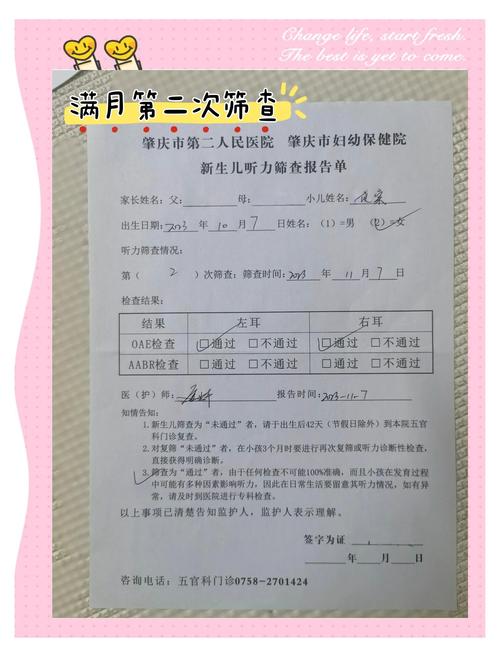 Change life, start fresh.
The best is yet to come.
满月第二次筛查
肇庆市第二人民医院 肇庆市妇幼保健院
新生儿听力筛查报告单
家长姓名：父： 母： 小儿姓名：
出生日期：2023 年 10 月 7 日姓名：（1）=男 （2）=女
听力筛查情况：
第（ 2 ）次筛查：筛查时间：2023 年 11 月 7 日
检查结果：
结果 左耳 右耳
OAE检查 ☑通过 □不通过 ☑通过 □不通过
AABR检查 □通过 □不通过 □通过 □不通过
医（护）师： 报告时间：2023-11-7
知情告知：
1.新生儿筛查为“未通过”者，请于出生后42天（节假日除外）到本院五官
科门诊复查。
2.对复筛“未通过”者，在小孩3个月时要进行再次复筛或听力诊断性检查，
直接获得明确诊断。
3.筛查为“通过”者，由于任何检查不可能100%准确，而且小孩在发育过程
中可能有多种因素影响听力，因此在日常生活要留意其听力情况，如有异
常，请及时到医院进行专科检查。
以上事项已清楚告知监护人，监护人表示理解。
签字为证
年 月 日
咨询电话：五官科门诊0758-2701424